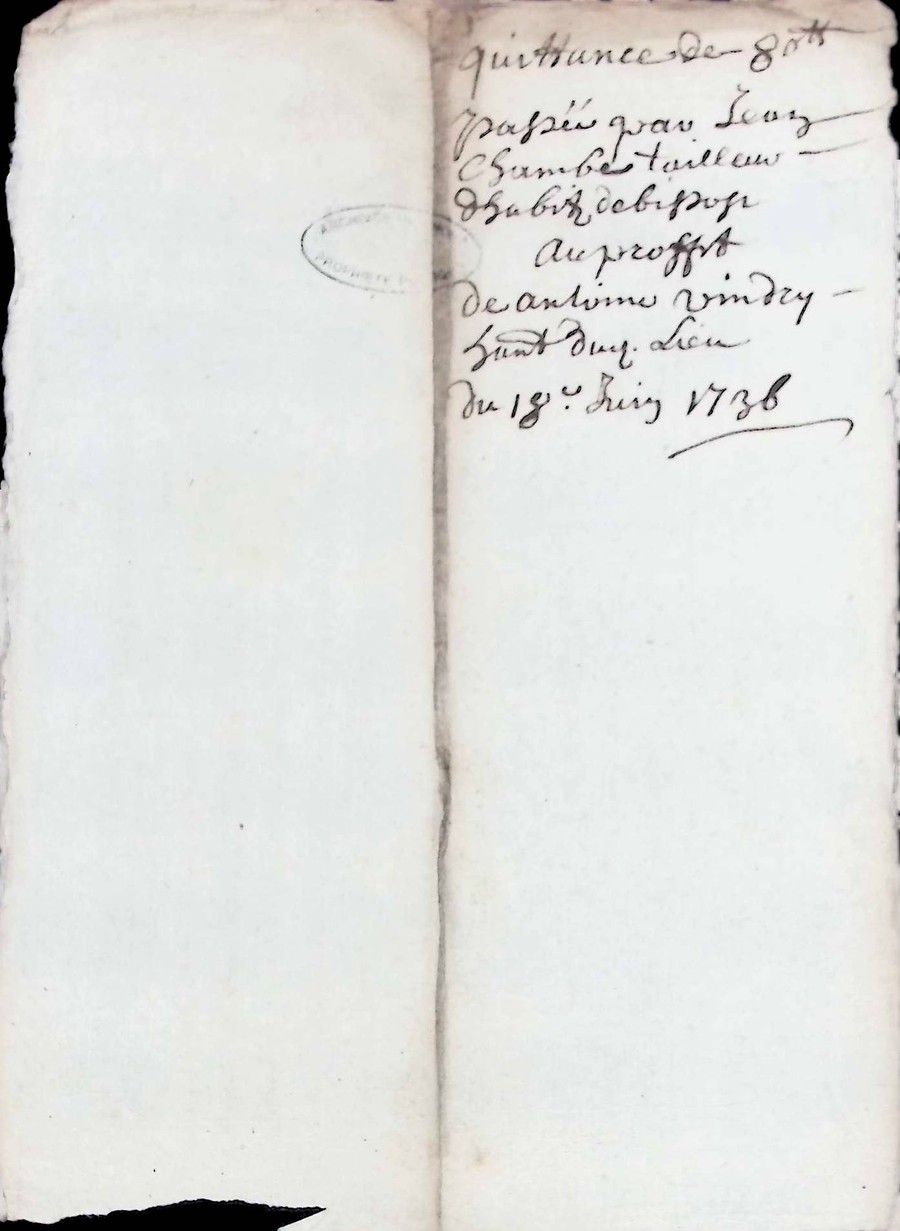 quittance de 80ᵗᵗ
passéé par Jean
Chambe tailleur
dhabitz de bissost
Au proffit
de antoine vindry
habnt dud. Lieu
du 18e Juin 1736
PROPRIETE PU